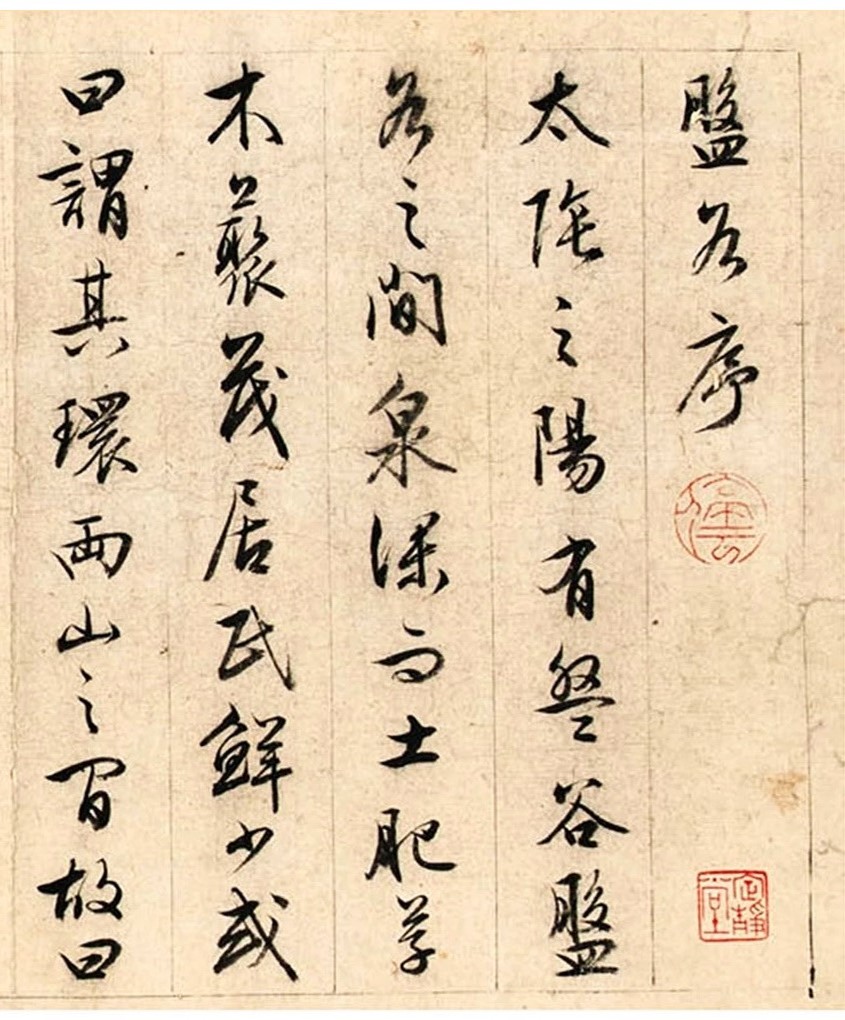 盤谷序
太之陽有盤谷盤
谷之間泉深而土肥草
木藂茂居民鮮少或
曰謂其環兩山之間故曰
定靜堂